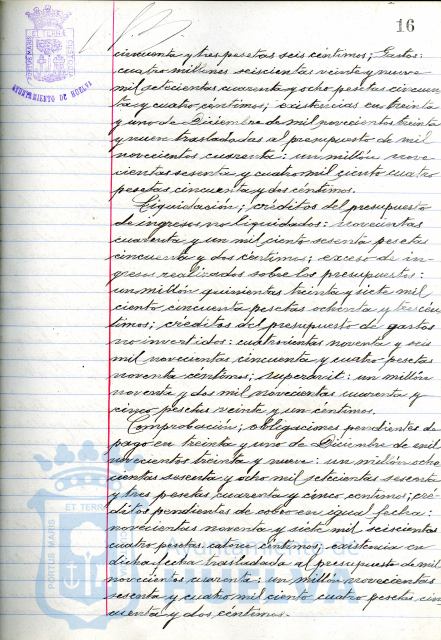 16
PORTUS MARIS ET TERRAE CUSTODIA
AYUNTAMIENTO DE HUELVA
cincuenta y tres pesetas seis céntimos; Gastos:
cuatro millones seiscientas veinte y nueve
mil setecientas cuarenta y ocho pesetas cincuen
ta y cuatro céntimos; existencias en treinta
y uno de Diciembre de mil novecientos treinta
y nueve trasladadas al presupuesto de mil
novecientos cuarenta: un millón nove
cientas sesenta y cuatro mil ciento cuatro
pesetas cincuenta y dos céntimos.
Liquidación; créditos del presupuesto
de ingresos no liquidados: novecientas
cuarenta y un mil ciento sesenta pesetas
cincuenta y dos céntimos; exceso de in
gresos realizados sobre los presupuestos:
un millón quinientas treinta y siete mil
ciento cincuenta pesetas ochenta y tres cén
timos; créditos del presupuesto de gastos
no invertidos: cuatrocientas noventa y seis
mil novecientas cincuenta y cuatro pesetas
noventa céntimos; superavit: un millón
noventa y dos mil novecientas cuarenta y
cinco pesetas veinte y un céntimos.
Comprobación; obligaciones pendientes de
pago en treinta y uno de Diciembre de mil
novecientos treinta y nueve: un millón ocho
cientas sesenta y ocho mil setecientas sesenta
y tres pesetas cuarenta y cinco céntimos; cré
ditos pendientes de cobro en igual fecha:
novecientas noventa y siete mil seiscientas
cuatro pesetas catorce céntimos; existencia en
dicha fecha trasladada al presupuesto de mil
novecientos cuarenta: un millón novecientas
sesenta y cuatro mil ciento cuatro pesetas cin
cuenta y dos céntimos.
PORTUS MARIS ET TERRAE
Ayuntamiento de
HUELVA